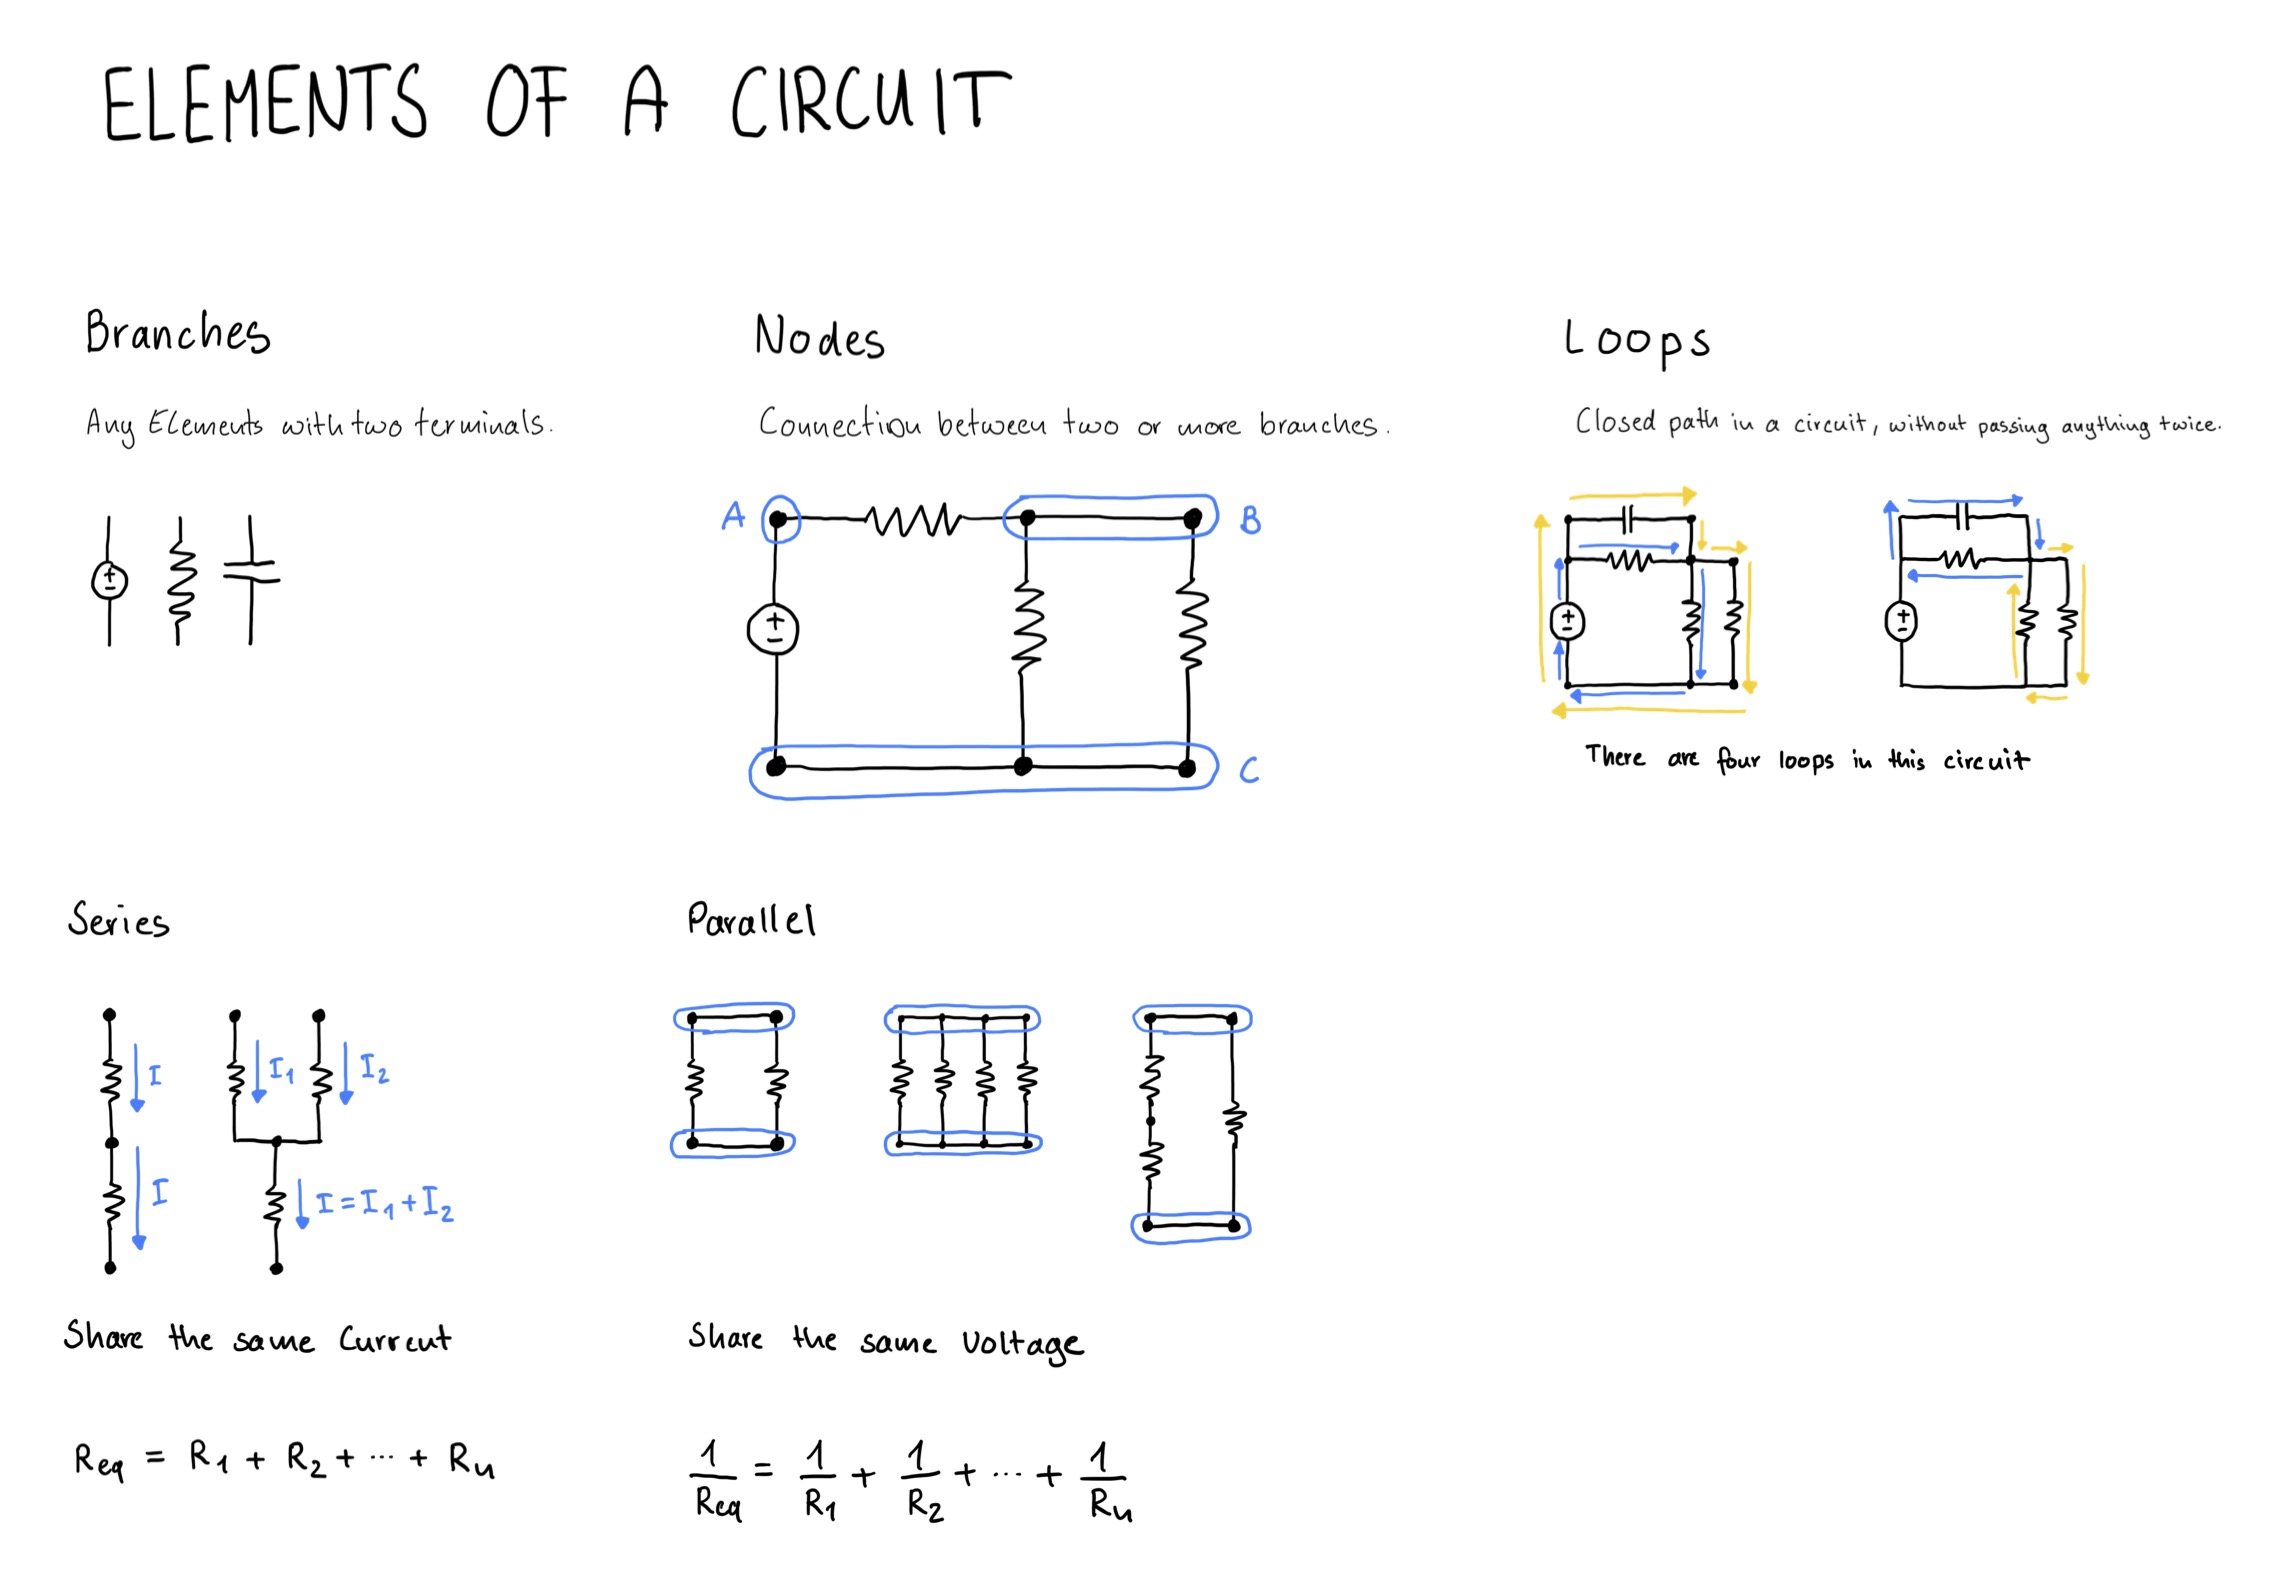 ELEMENTS OF A CIRCUIT
Branches
Any Elements with two terminals.
+
-
Nodes
Connection between two or more branches.
A
B
+
-
C
Loops
Closed path in a circuit, without passing anything twice.
+
-
+
-
There are four loops in this circuit
Series
I
I
I1
I2
I = I1 + I2
Share the same Current
Req = R1 + R2 + ... + Rn
Parallel
Share the same Voltage
1/Req = 1/R1 + 1/R2 + ... + 1/Rn